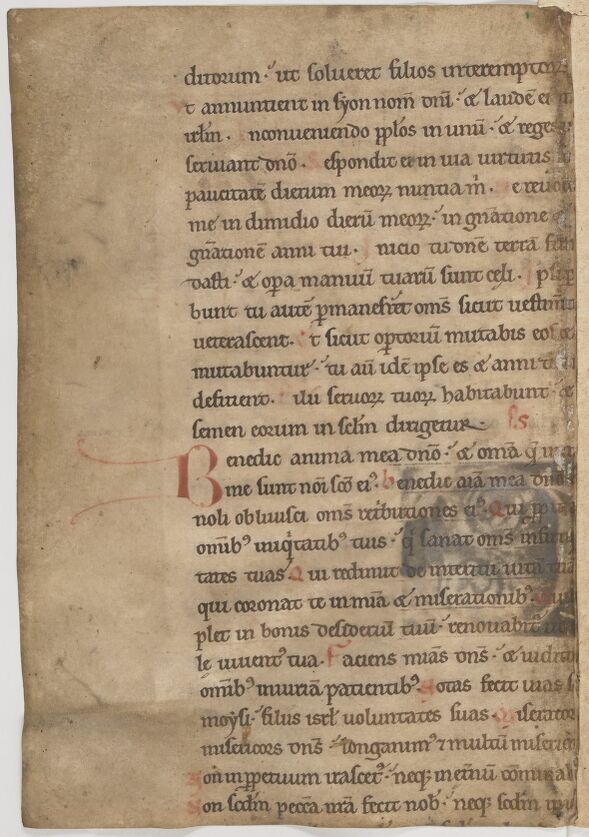 ditorum. ut solueret filios interemptorꝝ
t annuntient in syon nom̄ dn̄i. & laudē ei
ierlm̄. nconueniendo ꝓplos in unū. & reges
seruiant dnō. Respondit ei in uia uirtutis
paucitatē dierum meoꝝ nuntia m̄. e reuoc
me in dimidio dierū meoꝝ. in gn̄atione &
gn̄ationē anni tui. Inicio tu dnē terrā
dasti. & oꝑa manuū tuarū sunt celi. Ipsi
bunt tu autē ꝑmanes oms̄ sicut uestim
ueterascent. Et sicut optoriū mutabis eos &
mutabuntur. tu aū idē ipse es & anni
defitient. ilii seruoꝝ tuoꝝ habitabunt &
semen eorum in sclm̄ dirigetur. ps
Benedic anima mea dnō. & omā q̄
me sunt nōi scō eiꝰ. benedic aīā mea dnō
noli obliuisci oms̄ retributiones eiꝰ. Qui ꝓp
omībꝰ iniq̇tatibꝰ tuis. q̇ sanat oms̄ infir
tates tuas. Qui redimit de interitu uitā tuā
qui coronat te in mīa & miserationibꝰ. Qui
plet in bonis desideriū tuū. renouabit
le iuuentꝰ tua. Faciens mīas dns̄. & iudi
omībꝰ iniuriā patientibꝰ. Notas fecit uias s
moysi. filiis isrl̄ voluntates suas. Miserator
misericors dns̄. longanimꝰ ⁊ multū miseric
Non in ꝑpetuum irascet̄. neqꝫ in et̄nū cōmi
Non scdm̄ pecca nrā fecit nob̄. neqꝫ scdm̄